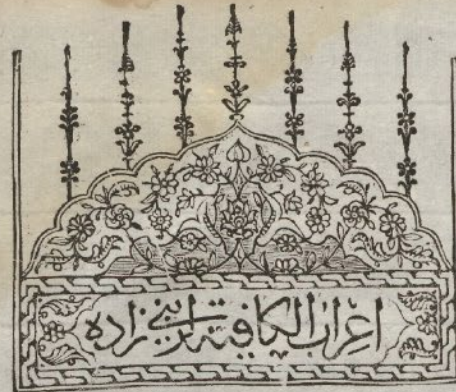 اعراب الكافية لزينى زاده